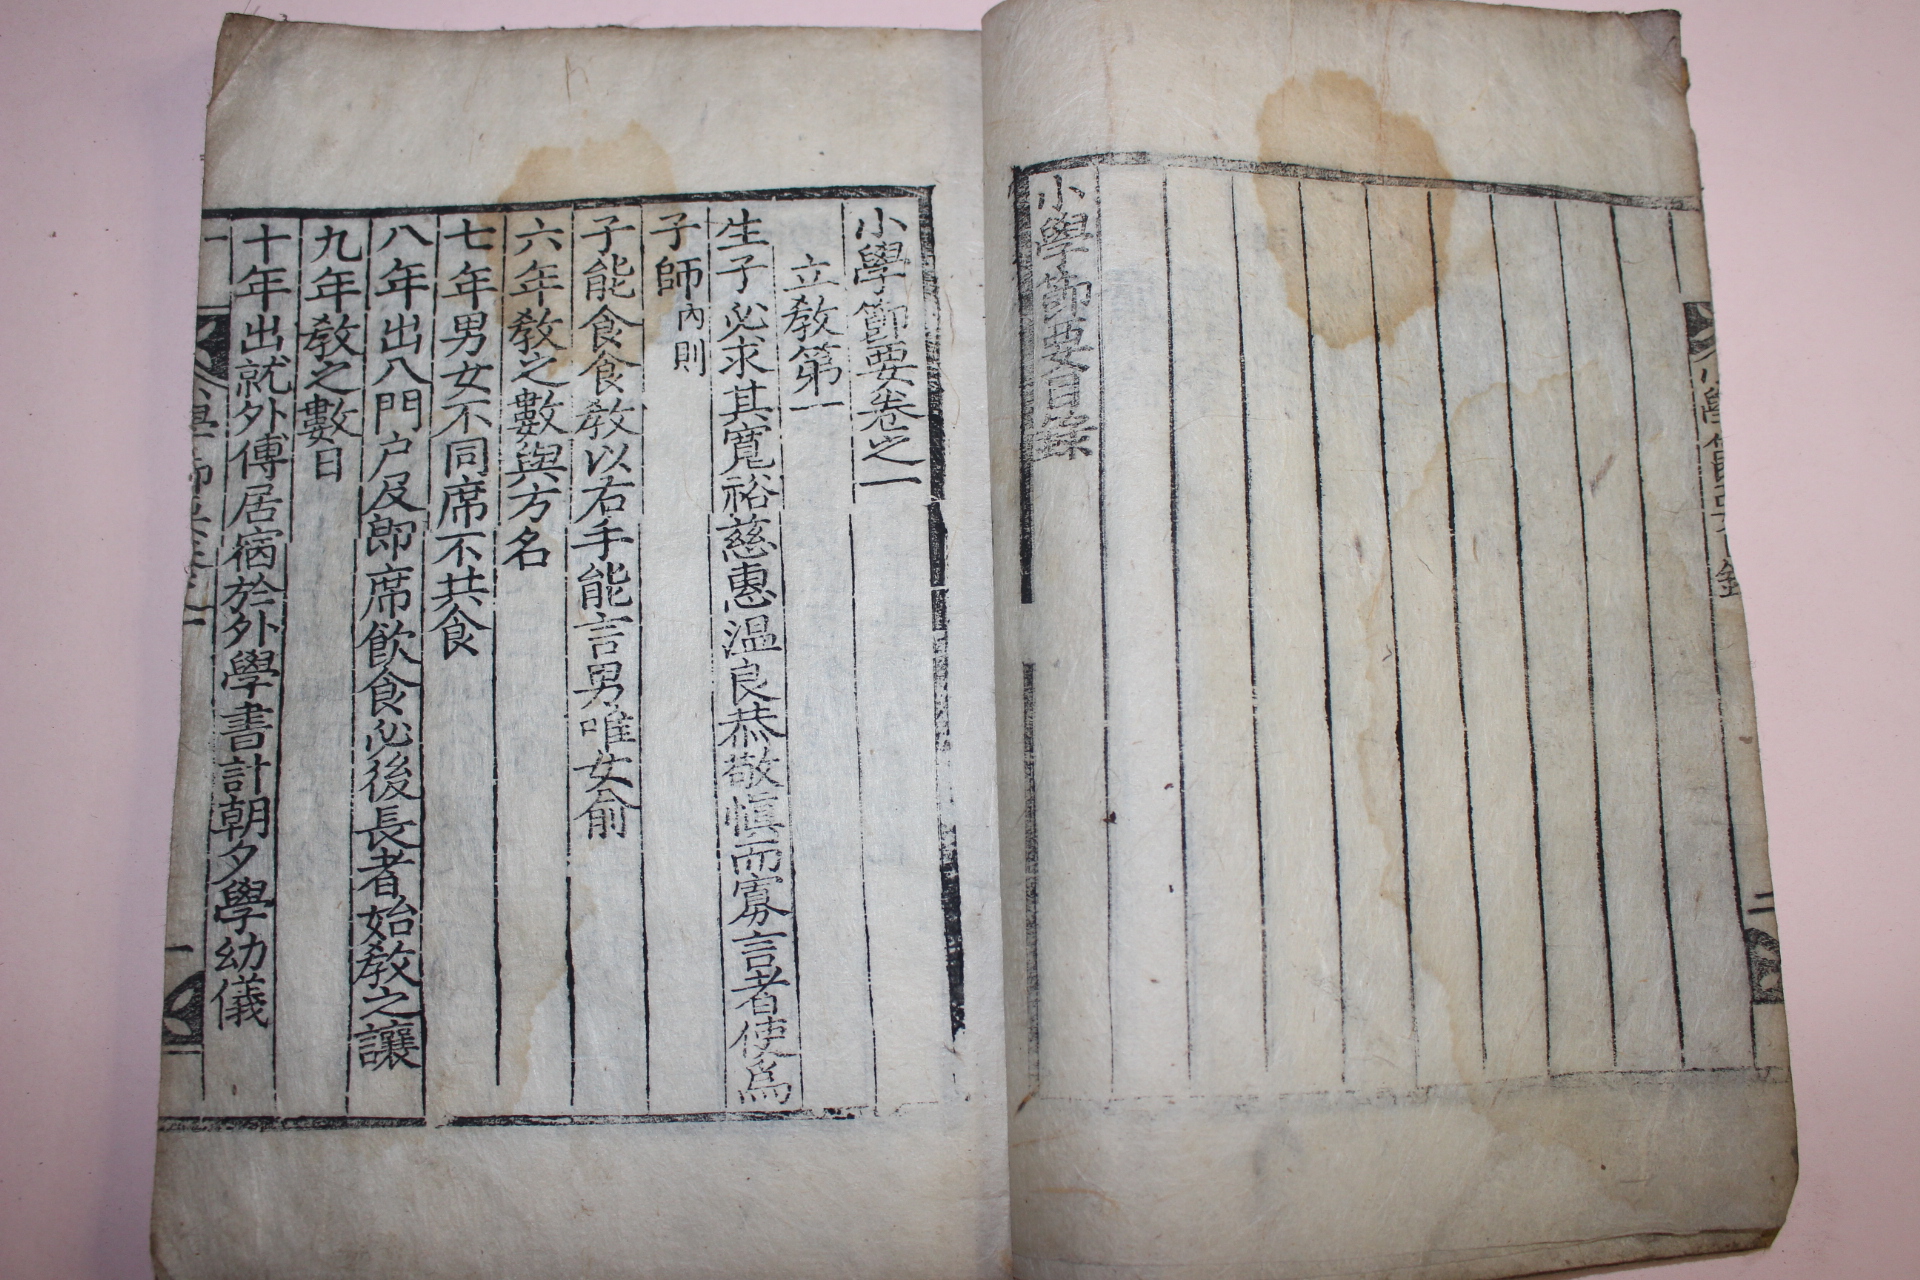 小學節要目錄
小學節要目錄
二
小學節要卷之一
立敎第一
生子必求其寬裕慈惠溫良恭敬愼而寡言者使爲
子師內則
子能食食敎以右手能言男唯女俞
六年敎之數與方名
七年男女不同席不共食
八年出入門戶及卽席飮食必後長者始敎之讓
九年敎之數日
十年出就外傅居宿於外學書計朝夕學幼儀
小學節要卷之一
一